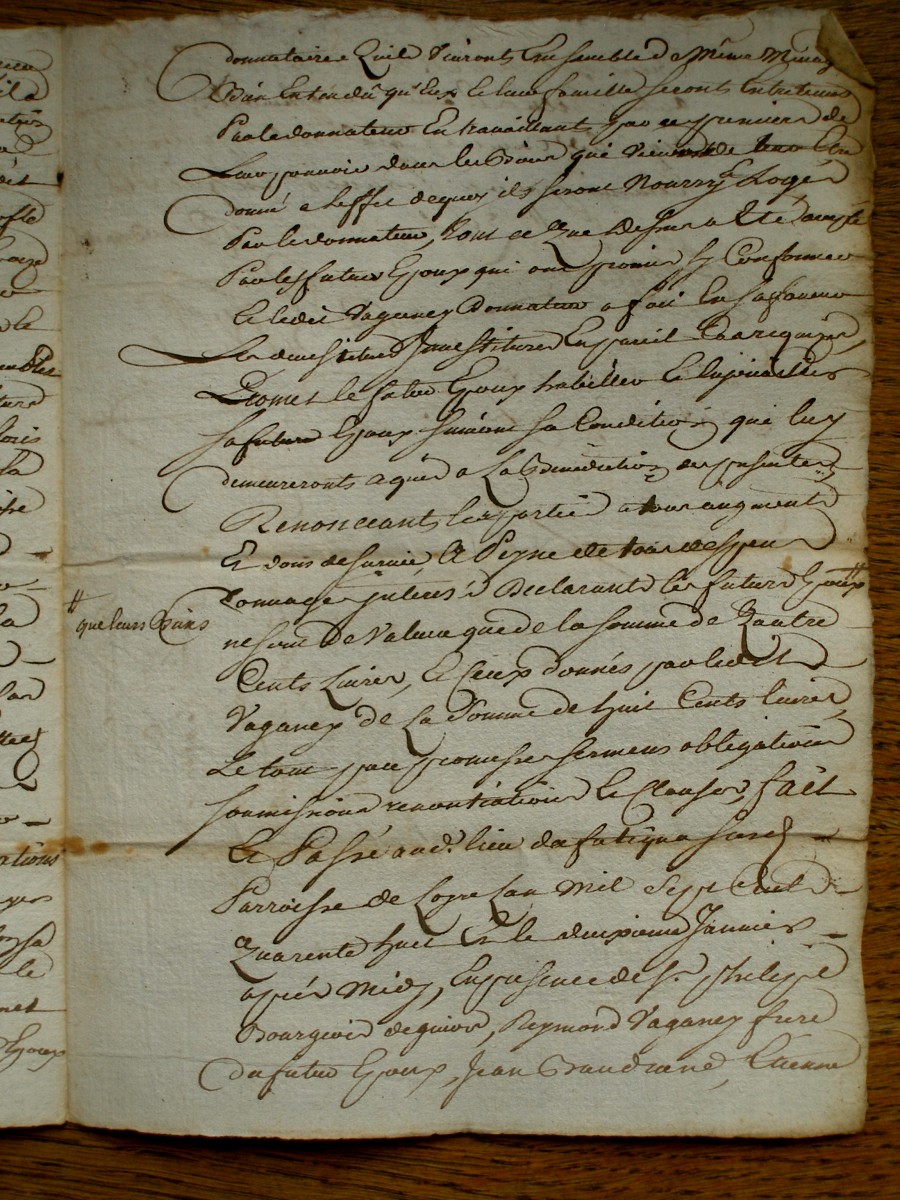 donnataire quil vivronts Ensemble de même menage
Bien Entendu qu'Eux Et leur famille seronts Entretenus
Par le donnateur En travaillant par ces premiers de
Leur pouvoir dans les Biens qui viennent de leur Etre
donné a l'effet de quoy ils seront Nourrys Logés
Par le donnateur, tout ce que Dessus a Eté accepté
Par les futurs Epoux qui ont promis sy Conformer
Et ledit Vaganey Donnateur a fait En sa faveur
Les devestitures Investitures En pareil Cas requises,
Promet le futur Epoux habiller Et Enjoualler
sa future Epouse suivant sa Condition qui luy
demeureronts aquis a La Benediction des presentes
Renonceants les parties a tous augments
Et dons de survie A Peyne de tous despens
Domages interes Declarants les futurs Epoux #
# que leurs Biens
ne sont de Valeur que de la somme de Quatre
Cents Livres, Et Ceux donnés par ledit
Vaganey de La Somme de huit Cents livres,
Le tout par promesse serments obligations
soumissions renontiations Et Clauses, fait
Et Passé aud. lieu du
Parroisse de Loyre Lan Mil Sept Cent
Quarente huit Et le deuxieme Janvier
après Midy, En presence de Sr. philippe
Bourgeois de givors, Reymond Vaganey frere
du futur Epoux, Jean Etienne